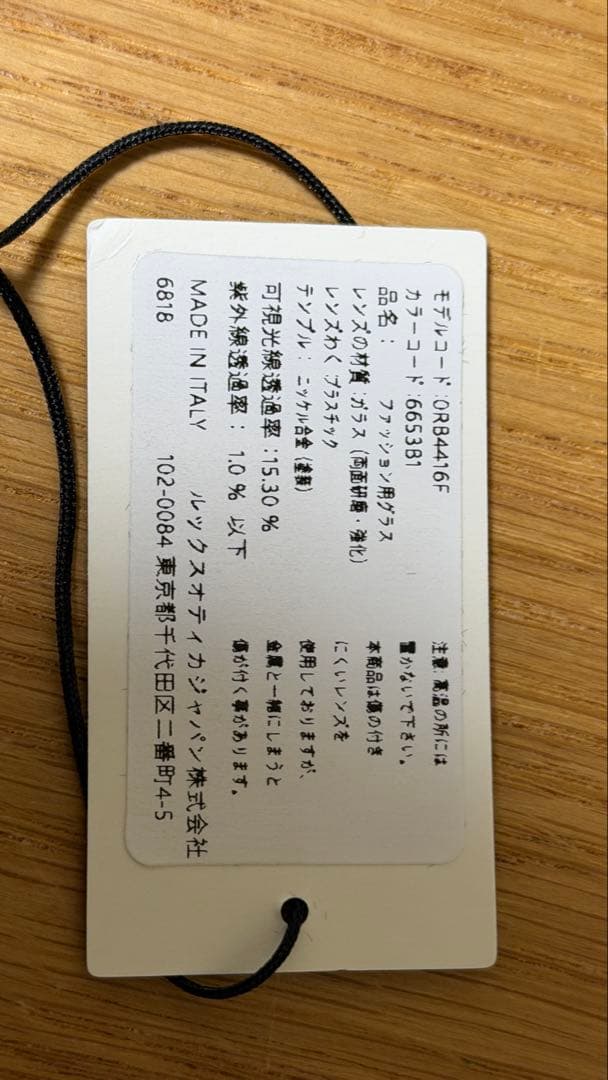 モデルコード:0RB4416F
カラーコード:6653B1
品名: ファッション用グラス
レンズの材質:ガラス(両面研磨・強化)
レンズわく:プラスチック
テンプル: ニッケル合金(塗装)
可視光線透過率:15.30 %
紫外線透過率: 1.0 % 以下
MADE IN ITALY ルックスオティカジャパン株式会社
6818 102-0084 東京都千代田区二番町4-5
注意:高温の所には
置かないで下さい。
本商品は傷の付き
にくいレンズを
使用しておりますが、
金属と一緒にしまうと
傷が付く事があります。